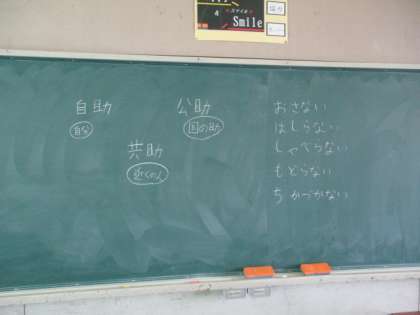 4 スマイル
Smile
自助
自分
公助
国の助
共助
近くの人
おさない
はしらない
しゃべらない
もどらない
ちかづかない